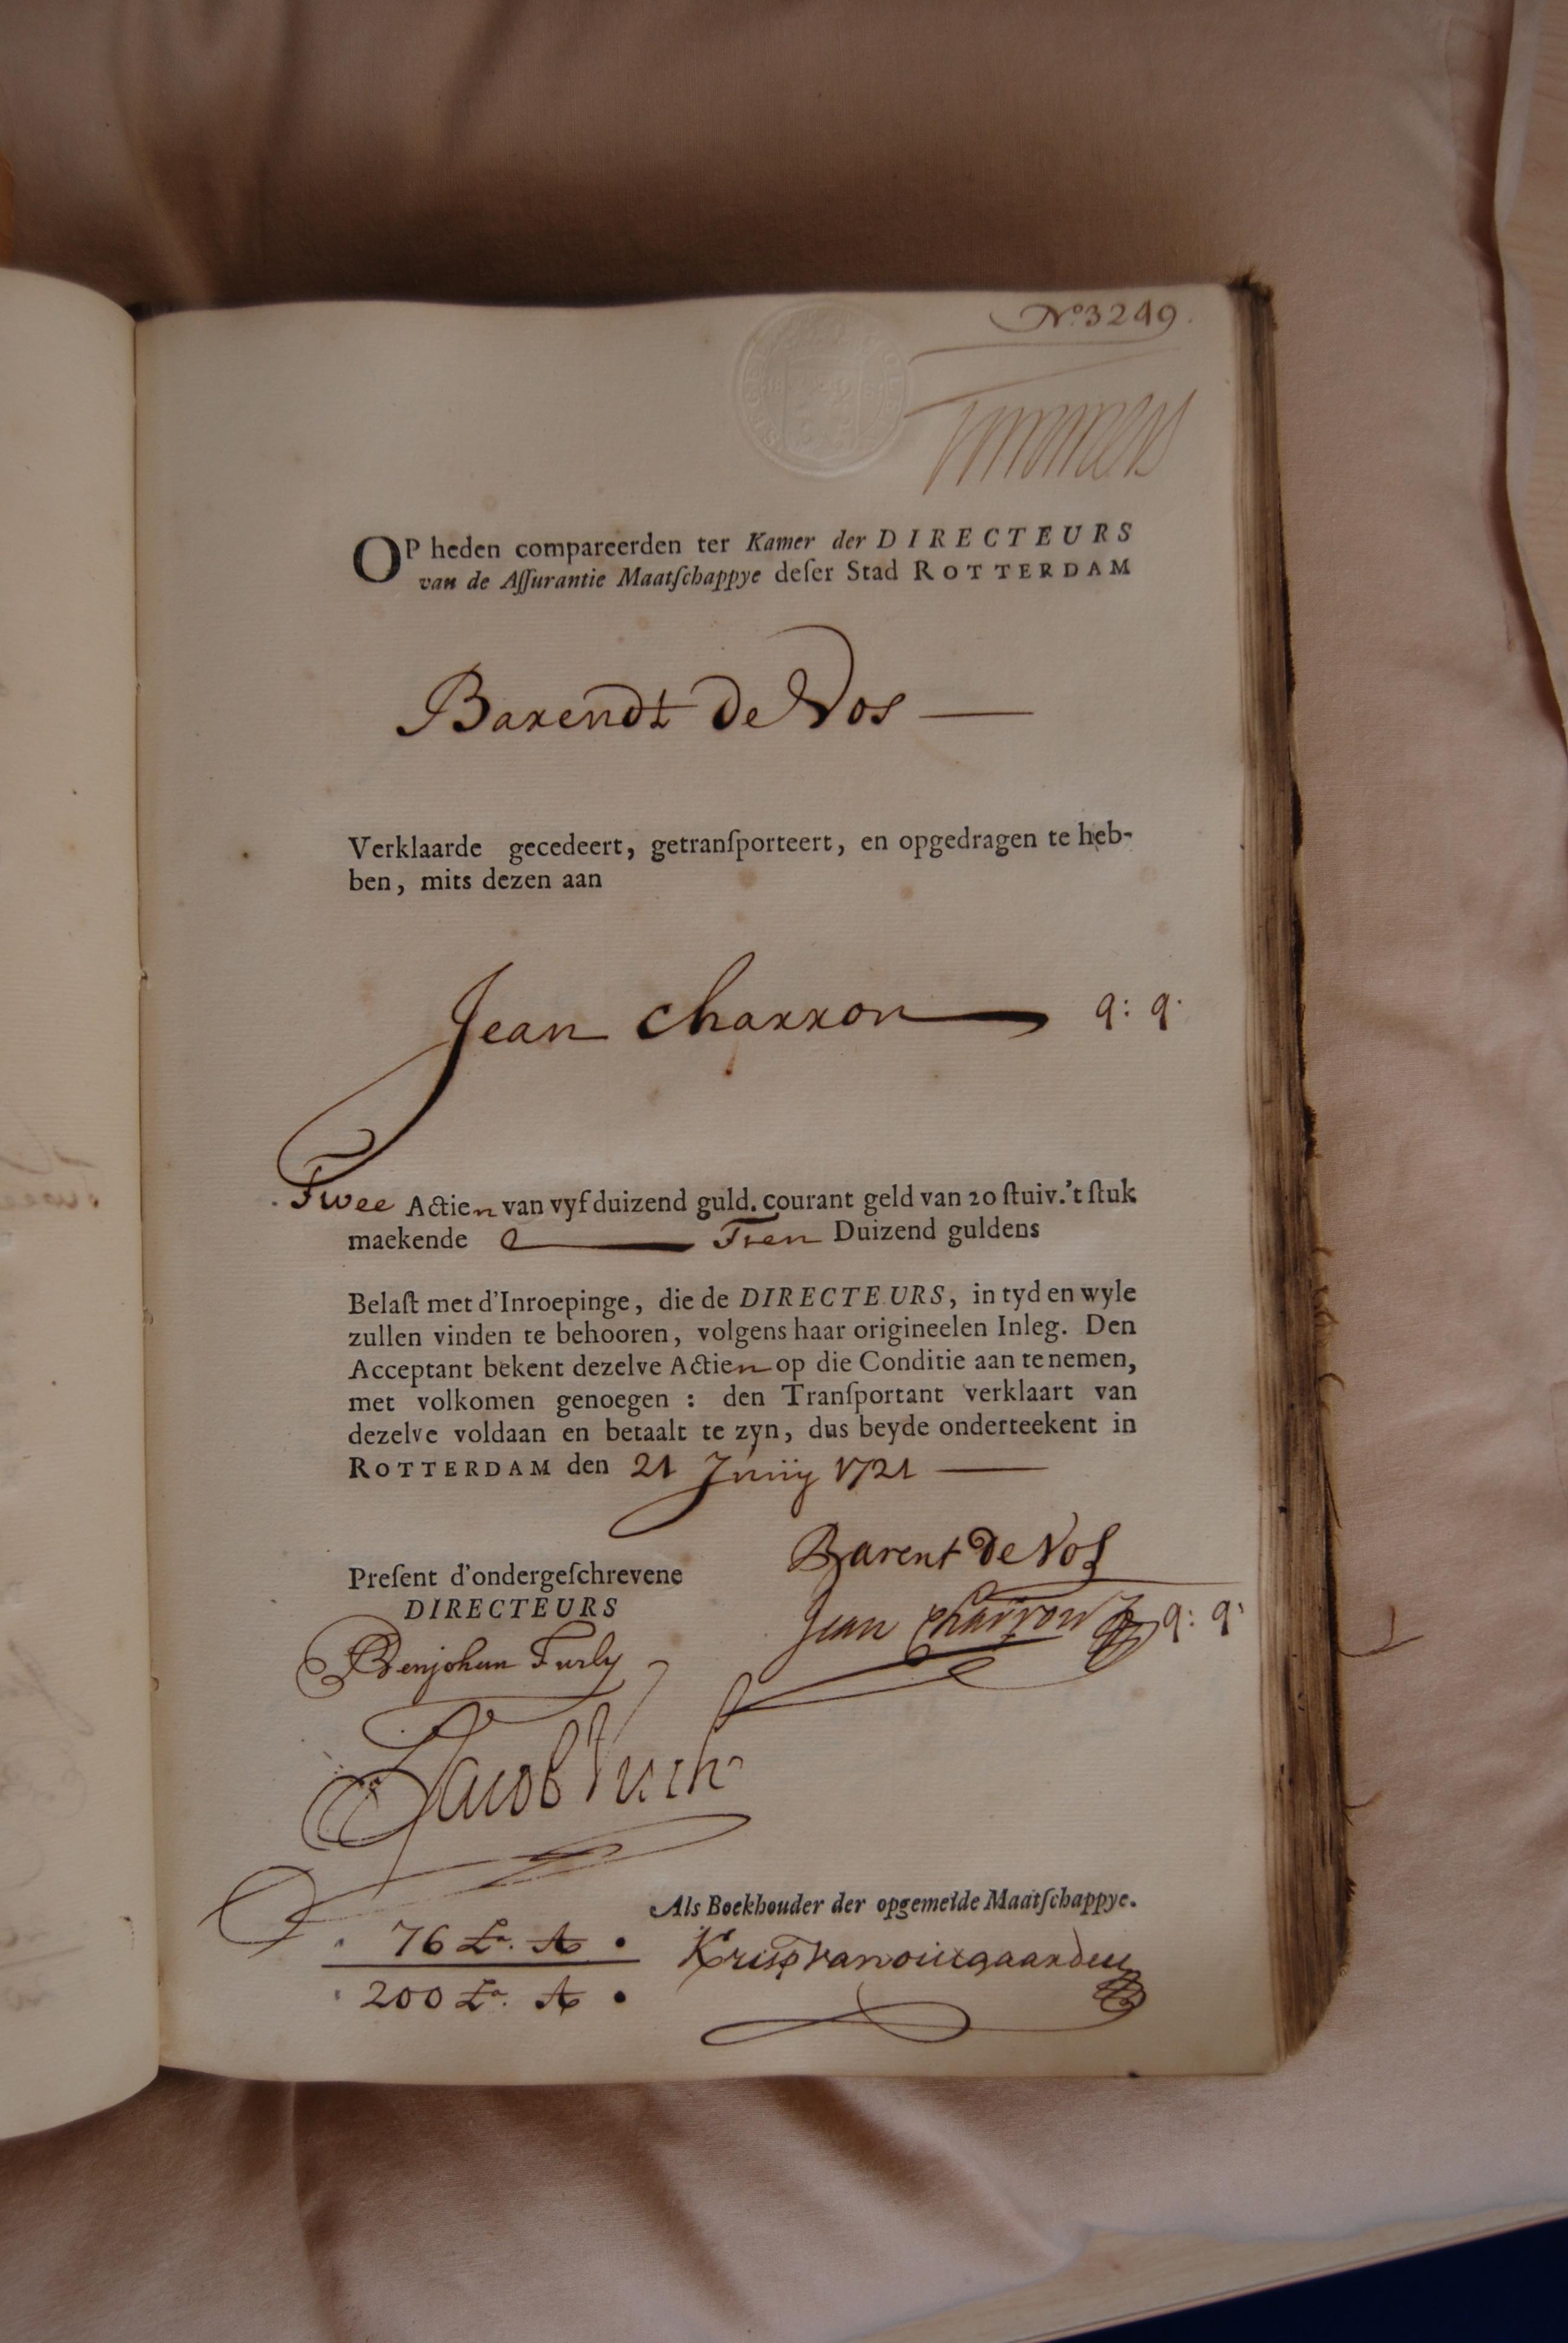 No. 3249.
Timmers
OP heden compareerden ter Kamer der DIRECTEURS
van de Aſſurantie Maatſchappye deſer Stad ROTTERDAM
Barendt de Vos
Verklaarde gecedeert, getranſporteert, en opgedragen te heb-
ben, mits dezen aan
Jean Charron q: q.
Twee Actien van vyf duizend guld. courant geld van 20 ſtuiv. 't ſtuk
maekende Tien Duizend guldens
Belaſt met d'Inroepinge, die de DIRECTEURS, in tyd en wyle
zullen vinden te behooren, volgens haar origineelen Inleg. Den
Acceptant bekent dezelve Actien op die Conditie aan te nemen,
met volkomen genoegen : den Tranſportant verklaart van
dezelve voldaan en betaalt te zyn, dus beyde onderteekent in
ROTTERDAM den 21 Junij 1721
Barent de Vos
Preſent d'ondergeſchrevene
DIRECTEURS
Jean Charron q: q:
Benjohan Furly
Jacob
Als Boekhouder der opgemelde Maatſchappye.
76 La. A
200 La. A